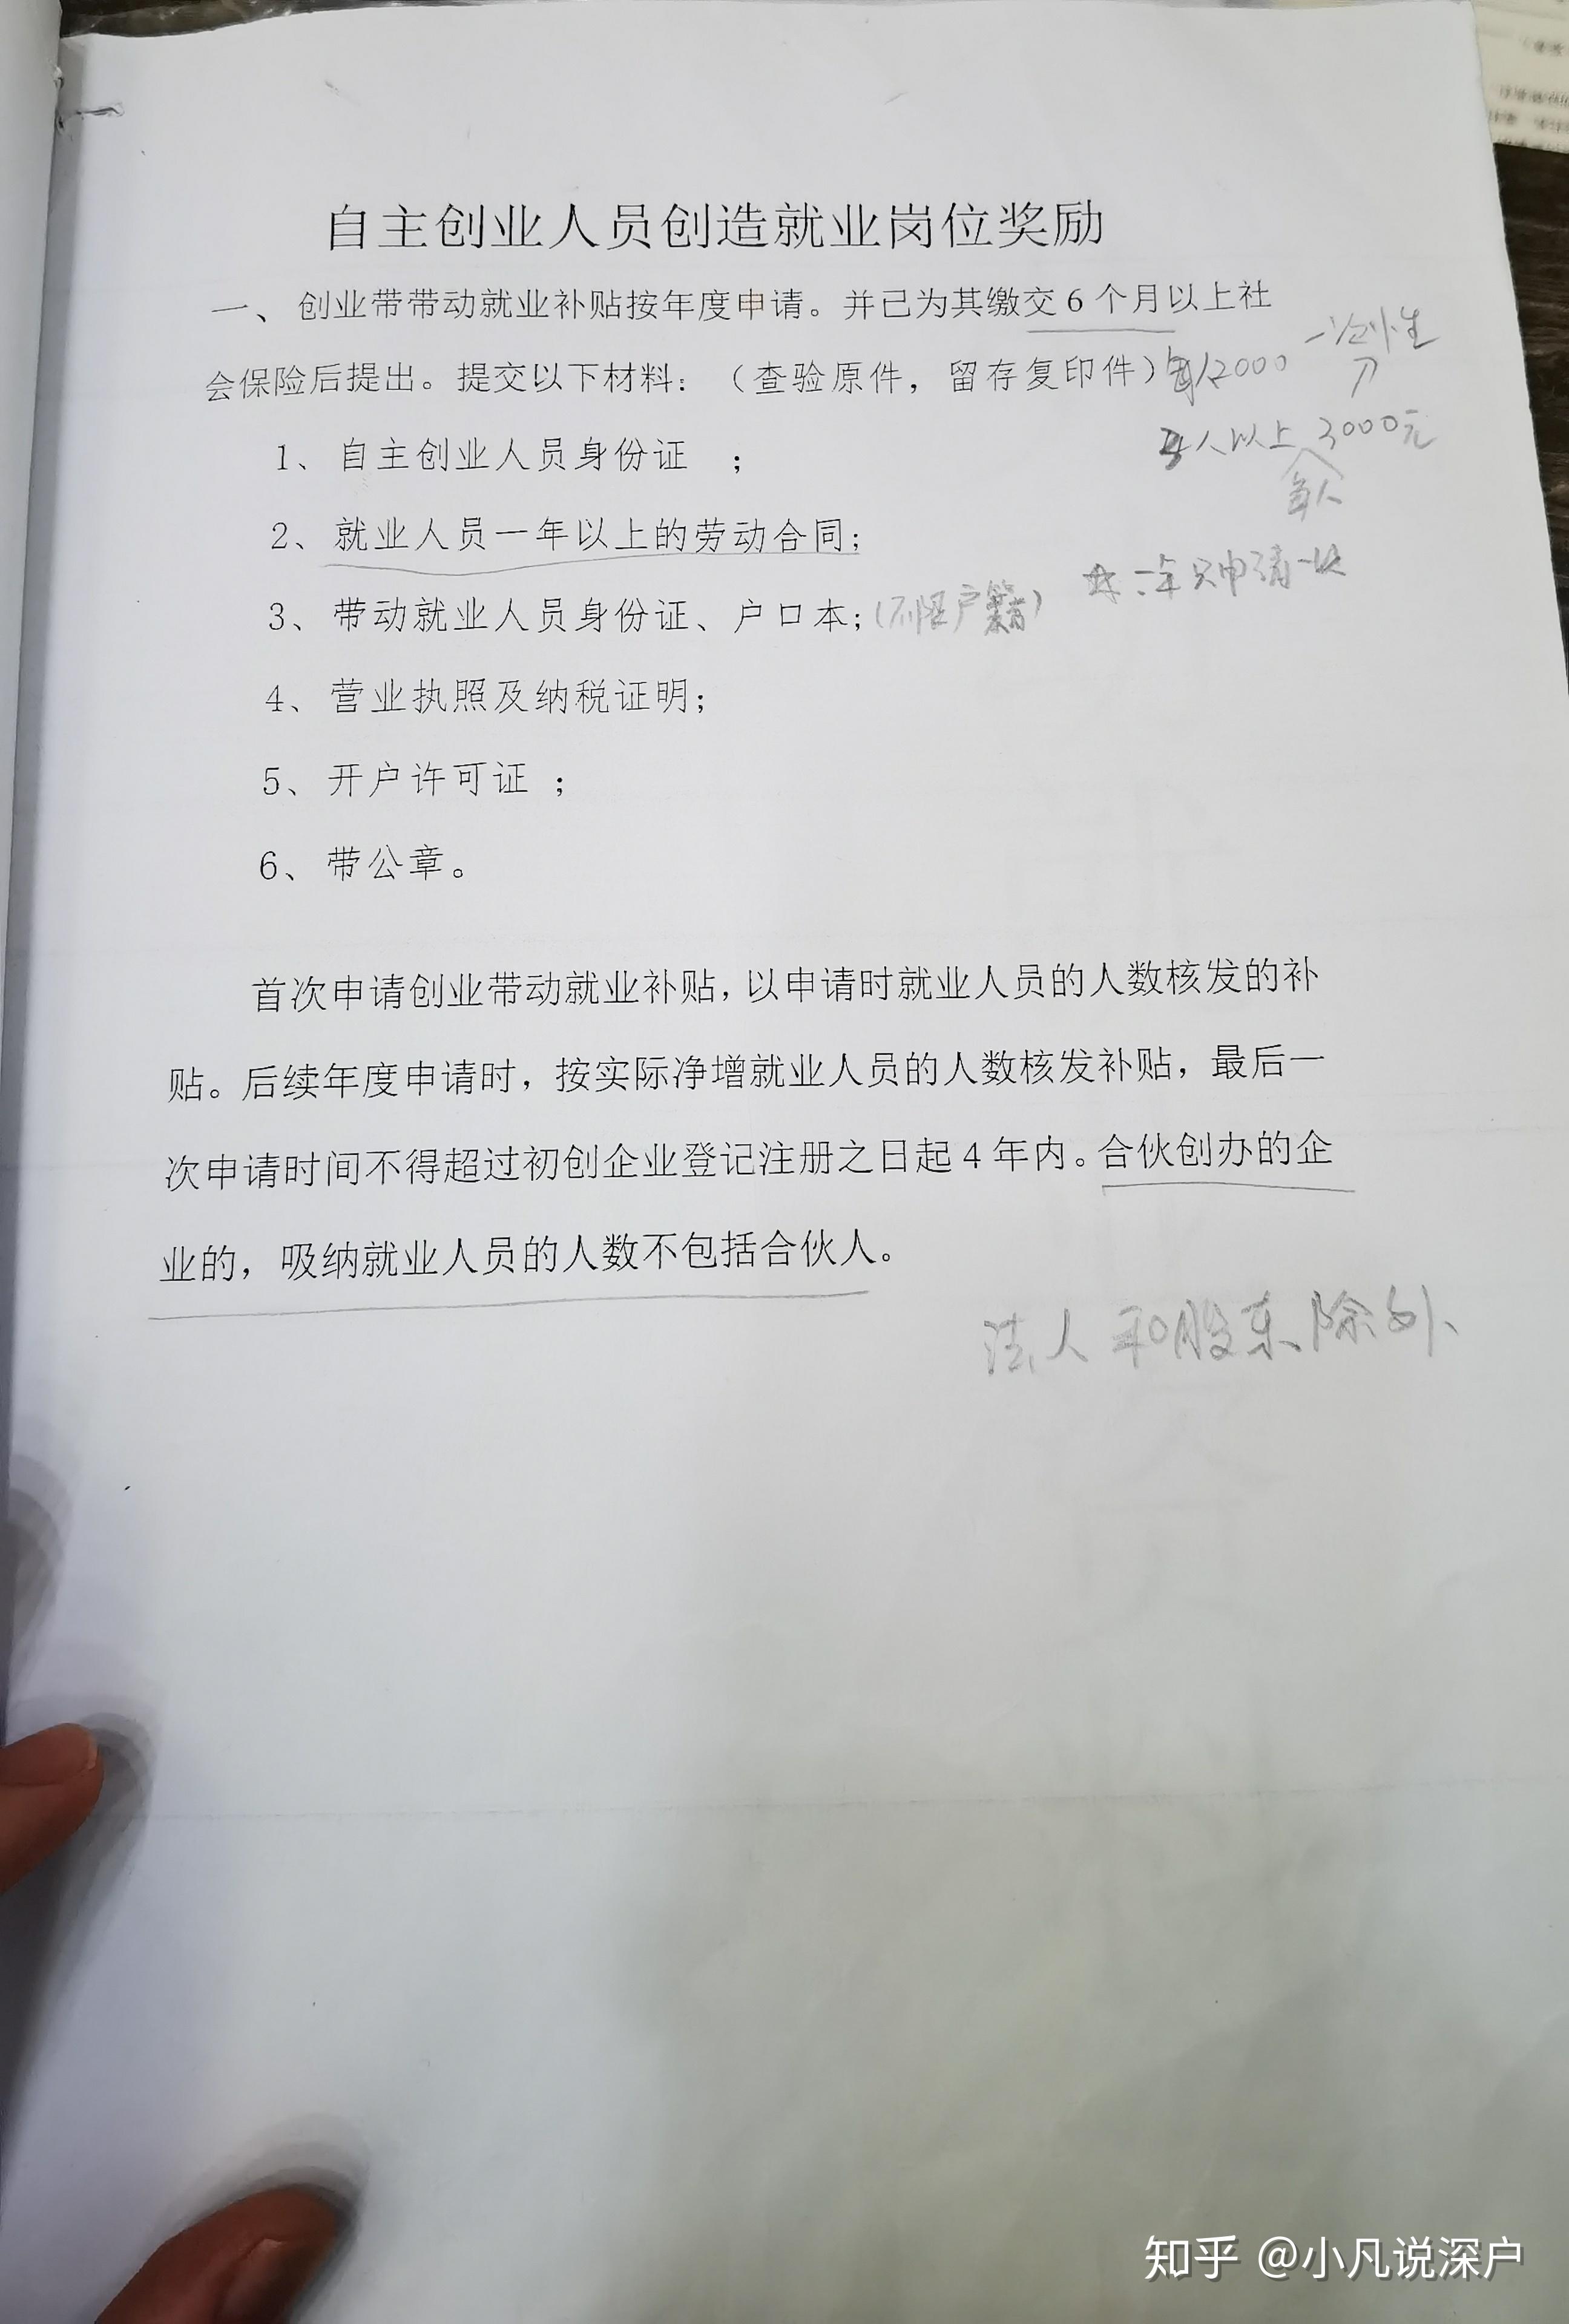 自主创业人员创造就业岗位奖励
一、创业带带动就业补贴按年度申请。并已为其缴交6个月以上社
一次性
会保险后提出。提交以下材料：（查验原件，留存复印件）每人2000
1、自主创业人员身份证 ；
人以上 3000元
每人
2、就业人员一年以上的劳动合同；
一年只申请一次
3、带动就业人员身份证、户口本；(不限户籍)
4、营业执照及纳税证明；
5、开户许可证 ；
6、带公章。
首次申请创业带动就业补贴，以申请时就业人员的人数核发的补
贴。后续年度申请时，按实际净增就业人员的人数核发补贴，最后一
次申请时间不得超过初创企业登记注册之日起4年内。合伙创办的企
业的，吸纳就业人员的人数不包括合伙人。
法人和股东除外
知乎 @小凡说深户